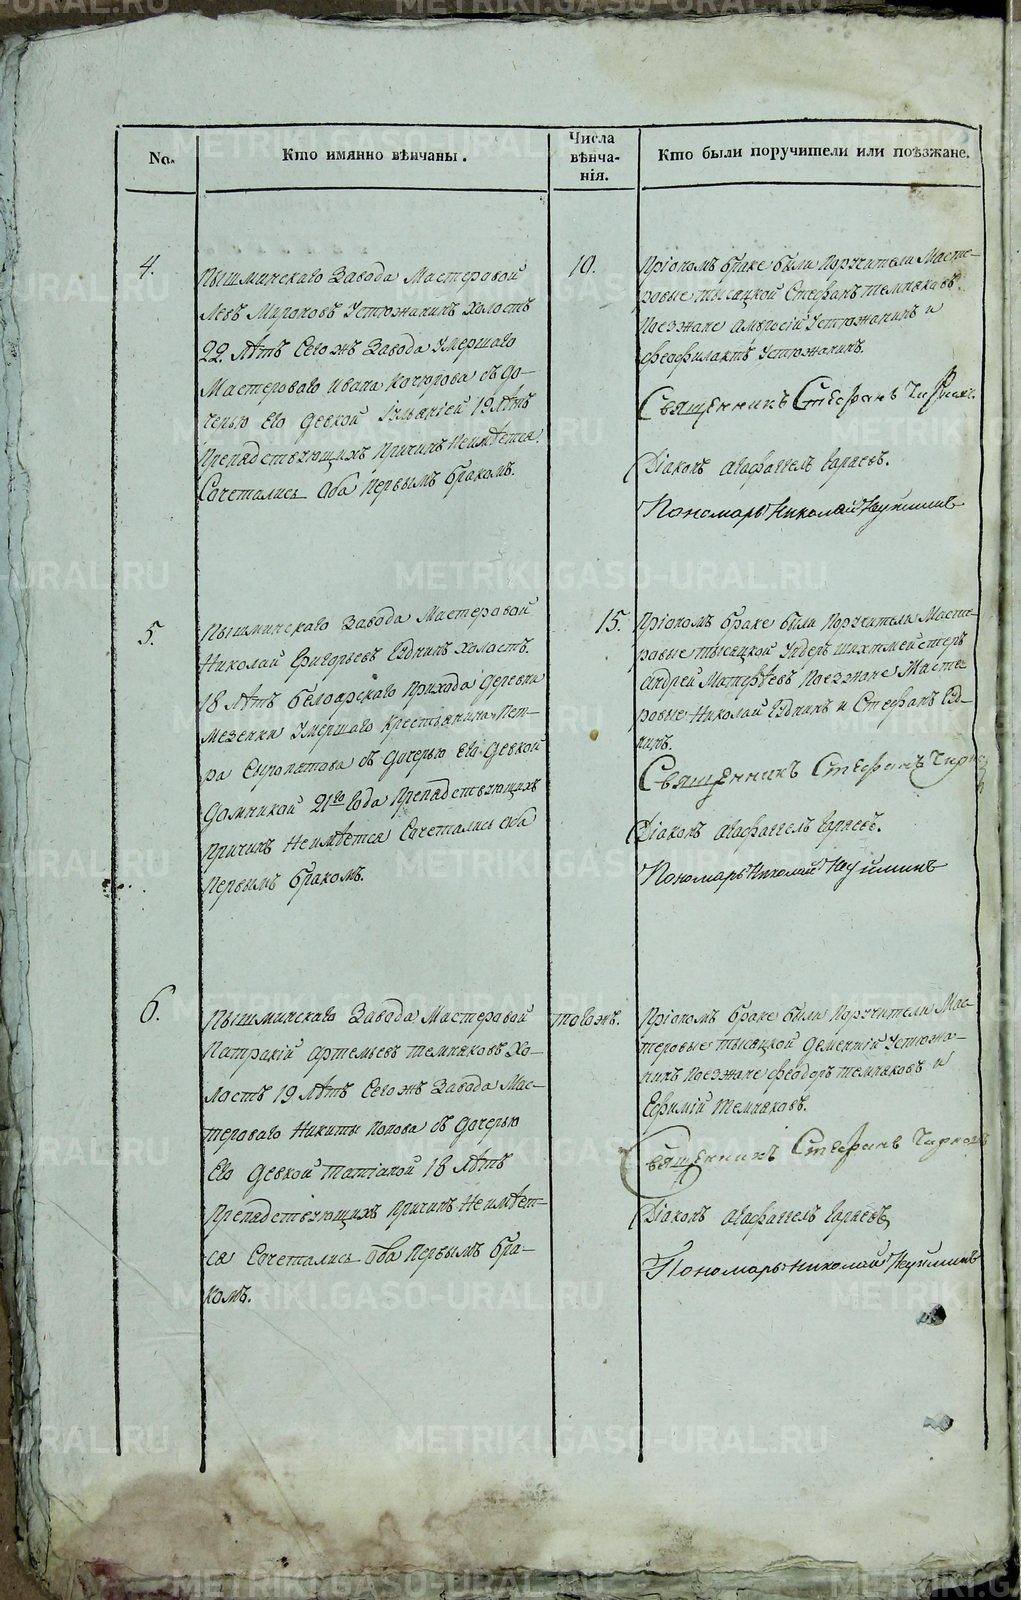 No.
Кто имянно вѣнчаны.
Числа
вѣнча-
нія.
Кто были поручители или поѣзжане.
4.
Пышминскаго Завода Мастеровой
Левъ Мироновъ Устюжанинъ Холостъ
22. лѣтъ Сегожъ Завода Умершаго
Мастероваго Ивана Качюрова съ до-
черью Его девкой 19 лѣтъ
Препядствующихъ Причинъ Неимѣется
Сочетались Оба Первымъ бракомъ.
10.
Приономъ браке были Поручители Масте-
ровые тысяцкой Стефанъ темняковъ.
Поезжане Амвросій Устюжанинъ и
Феофилактъ Устюжанинъ.
Священникъ Стефанъ
Діаконъ
Пономарь Николай Неуйминъ
5.
Пышминскаго Завода Мастеровой
Николай Григорьевъ холостъ.
18 лѣтъ белоярскаго Прихода деревни
Мезенки Умершаго Крестьянина Пет-
ра Сыропятова съ дочерью Его девкой
Домникой 21го года Препядствующихъ
Причинъ Неимѣется Сочетались оба
Первымъ бракомъ.
15.
Приономъ браке были Поручители Масте-
ровые тысяцкой Ундеръ шихтмейстеръ
Андрей Матвѣевъ Поезжане Масте-
ровые Николай и Стефанъ
Священникъ Стефанъ
Діаконъ
Пономарь Николай Неуйминъ
6.
Пышминскаго Завода Мастеровой
Патракій Артемьевъ темняковъ Хо-
лостъ 19 лѣтъ Сегожъ Завода Мас-
тероваго Никиты Попова съ дочерью
Его девкой Татіаной 18 лѣтъ
Препядствующихъ Причинъ Неимѣет-
ся Сочетались Оба Первымъ бра-
комъ.
тогожъ.
Приономъ браке были Поручители Мас-
теровые тысяцкой Дементій Устюжа-
нинъ Поезжане Феодоръ темняковъ и
Ефимій Темняковъ.
Священникъ Стефанъ
Діаконъ
Пономарь Николай Неуйминъ
METRIKI.GASO-URAL.RU